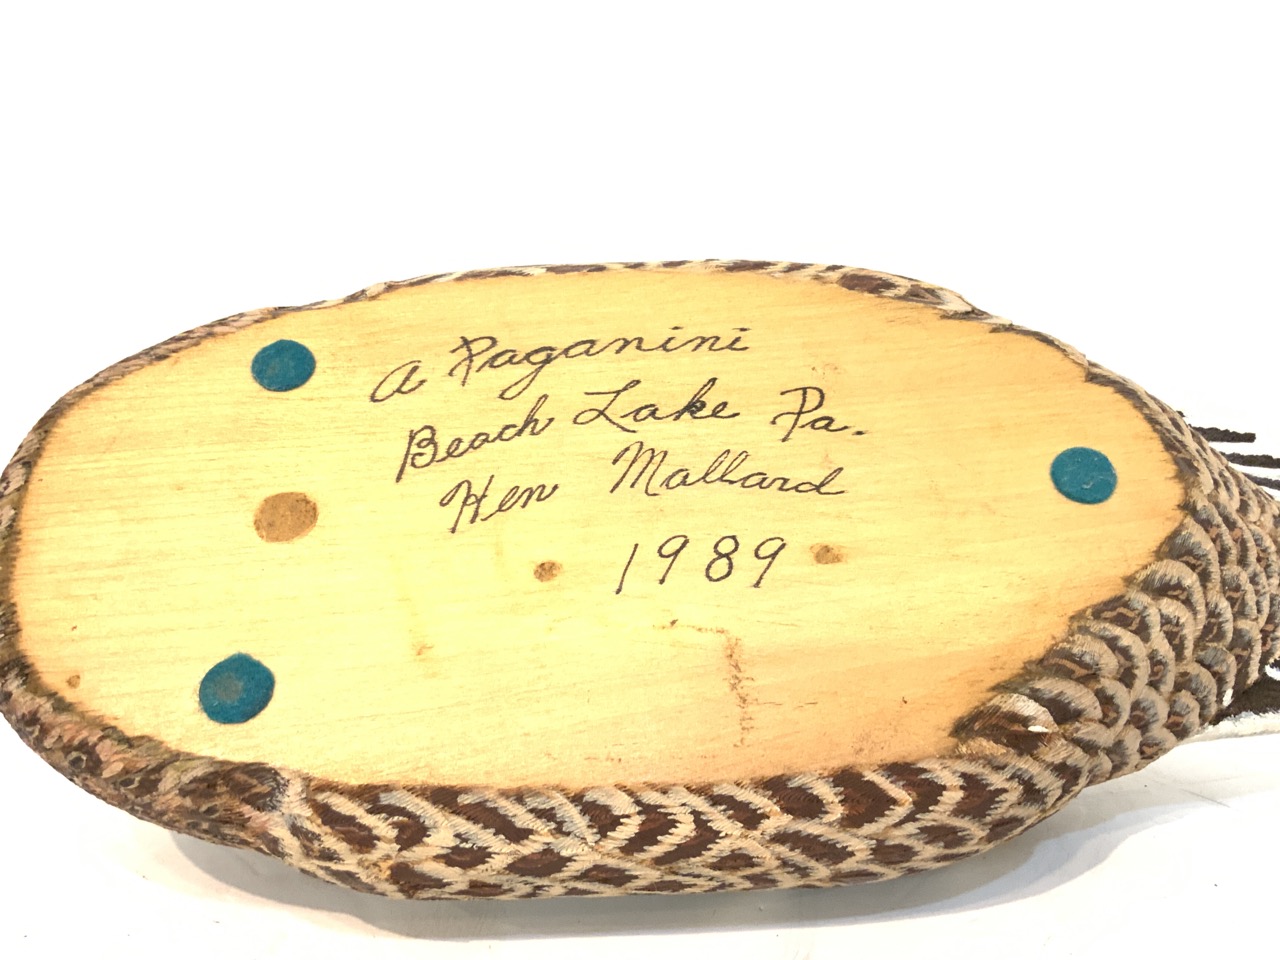 A Paganini
Beach Lake Pa.
Hen Mallard
1989